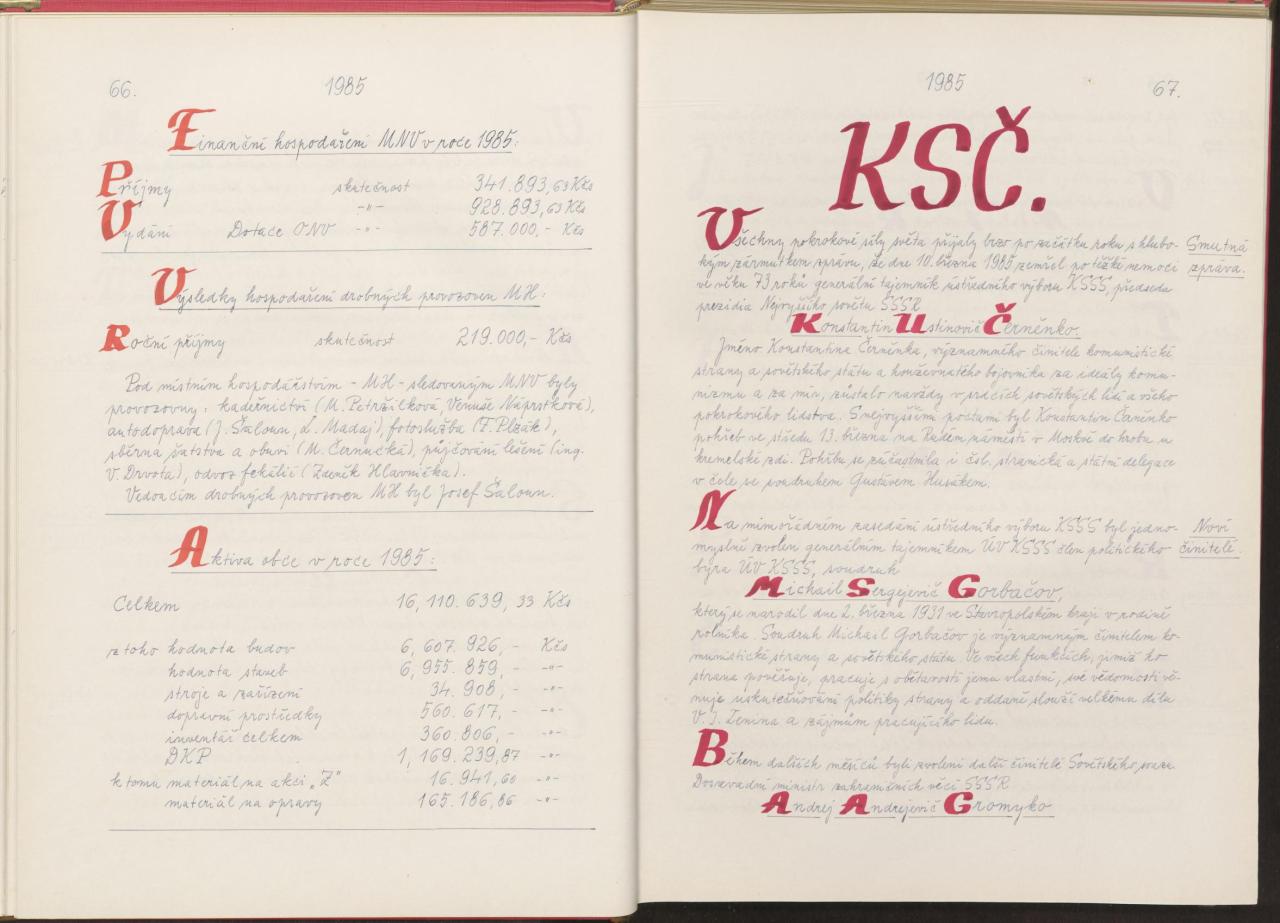 66. 1985
Finanční hospodaření MNV v roce 1985:
Příjmy skutečnost 341.893,63 Kčs
-„- 928.893,63 Kčs
Vydání Dotace ONV -„- 587.000,- Kčs
Výsledky hospodaření drobných provozoven MH:
Roční příjmy skutečnost 219.000,- Kčs
Pod místním hospodářstvím - MH - sledovaným MNV byly
provozovny: kadeřnictví (M. Petržilková, Venuše Náprstková),
autodoprava (J. Šaloun, L. Madaj), fotoslužba (F. Plzák),
sběrna šatstva a obuvi (M. Černucká), půjčování lešení (ing.
V. Drvota), odvoz fekálií (Zdeněk Hlavnička).
Vedoucím drobných provozoven MH byl Josef Šaloun.
Aktiva obce v roce 1985:
Celkem 16,110.639,33 Kčs
z toho hodnota budov 6,607.926,- Kčs
hodnota staveb 6,955.859,- -„-
stroje a zařízení 34.908,- -„-
dopravní prostředky 560.617,- -„-
inventář celkem 360.806,- -„-
DKP 1,169.239,87 -„-
k tomu materiál na akci „Z" 16.941,60 -„-
materiál na opravy 165.186,86 -„-
1985 67.
KSČ.
Všechny pokrokové síly světa přijaly brzo po začátku roku s hlubo- Smutná
kým zármutkem zprávu, že dne 10. března 1985 zemřel po těžké nemoci zpráva.
ve věku 73 roků generální tajemník ústředního výboru KSSS, předseda
prezidia Nejvyššího sovětu SSSR
Konstantin Ustinovič Černěnko.
Jméno Konstantina Černěnka, významného činitele komunistické
strany a sovětského státu a houževnatého bojovníka za ideály komu-
nizmu a za mír, zůstalo navždy v srdcích sovětských lidí a všeho
pokrokového lidstva. S nejvyššími poctami byl Konstantin Černěnko
pohřben ve středu 13. března na Rudém náměstí v Moskvě do hrobu u
kremelské zdi. Pohřbu se zúčastnila i čsl. stranická a státní delegace
v čele se soudruhem Gustávem Husákem.
Na mimořádném zasedání ústředního výboru KSSS byl jedno- Noví
myslně zvolen generálním tajemníkem ÚV KSSS člen politického činitelé.
byra ÚV KSSS, soudruh
Michail Sergejevič Gorbačov,
který se narodil dne 2. března 1931 ve Stavropolském kraji v rodině
rolníka. Soudruh Michail Gorbačov je významným činitelem ko-
munistické strany a sovětského státu. Ve všech funkcích, jimiž ho
strana pověřuje, pracuje s obětavostí jemu vlastní, své vědomosti vě-
nuje uskutečňování politiky strany a oddaně slouží velkému dílu
V. I. Lenina a zájmům pracujícího lidu.
Během dalších měsíců byli zvoleni další činitelé Sovětského svazu.
Dosavadní ministr zahraničních věcí SSSR
Andrej Andrejevič Gromyko